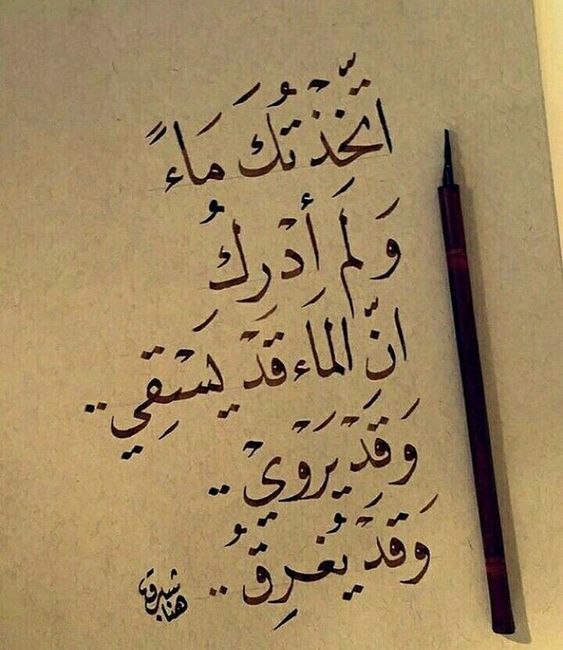 اتَّخَذْتُكَ مَاءً
وَلَم أَدْرِكُ
انّ الماء قَدْ يَسْقِي ..
وَقَدْ يَرْوِيْ ..
وَقَدْ يُغرِقُ ..